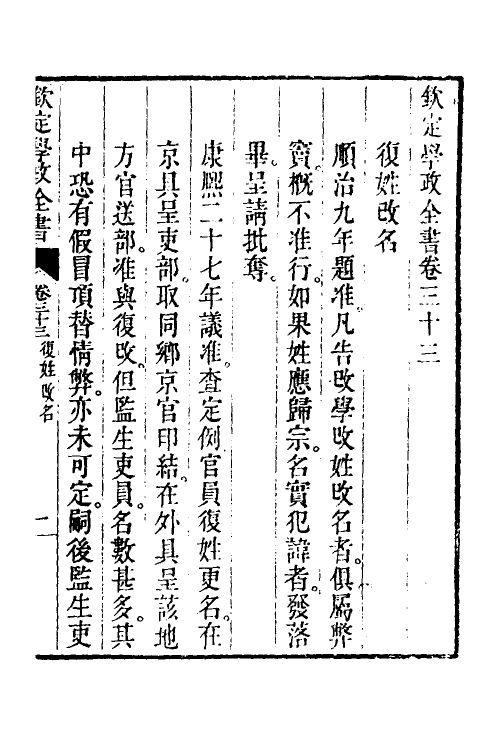 欽定學政全書卷三十三
復姓改名
順治九年題准凡告改學改姓改名者。俱屬弊
竇。概不准行。如果姓應歸宗。名實犯諱者。發落
畢。呈請批奪。
康熙二十七年議准查定例官員復姓更名。在
京具呈吏部。取同鄉京官印結。在外具呈該地
方官送部。准與復改。但監生吏員名數甚多。其
中恐有假冒頂替情弊。亦未可定。嗣後監生吏
欽定學政全書 卷三十三 復姓改名 一